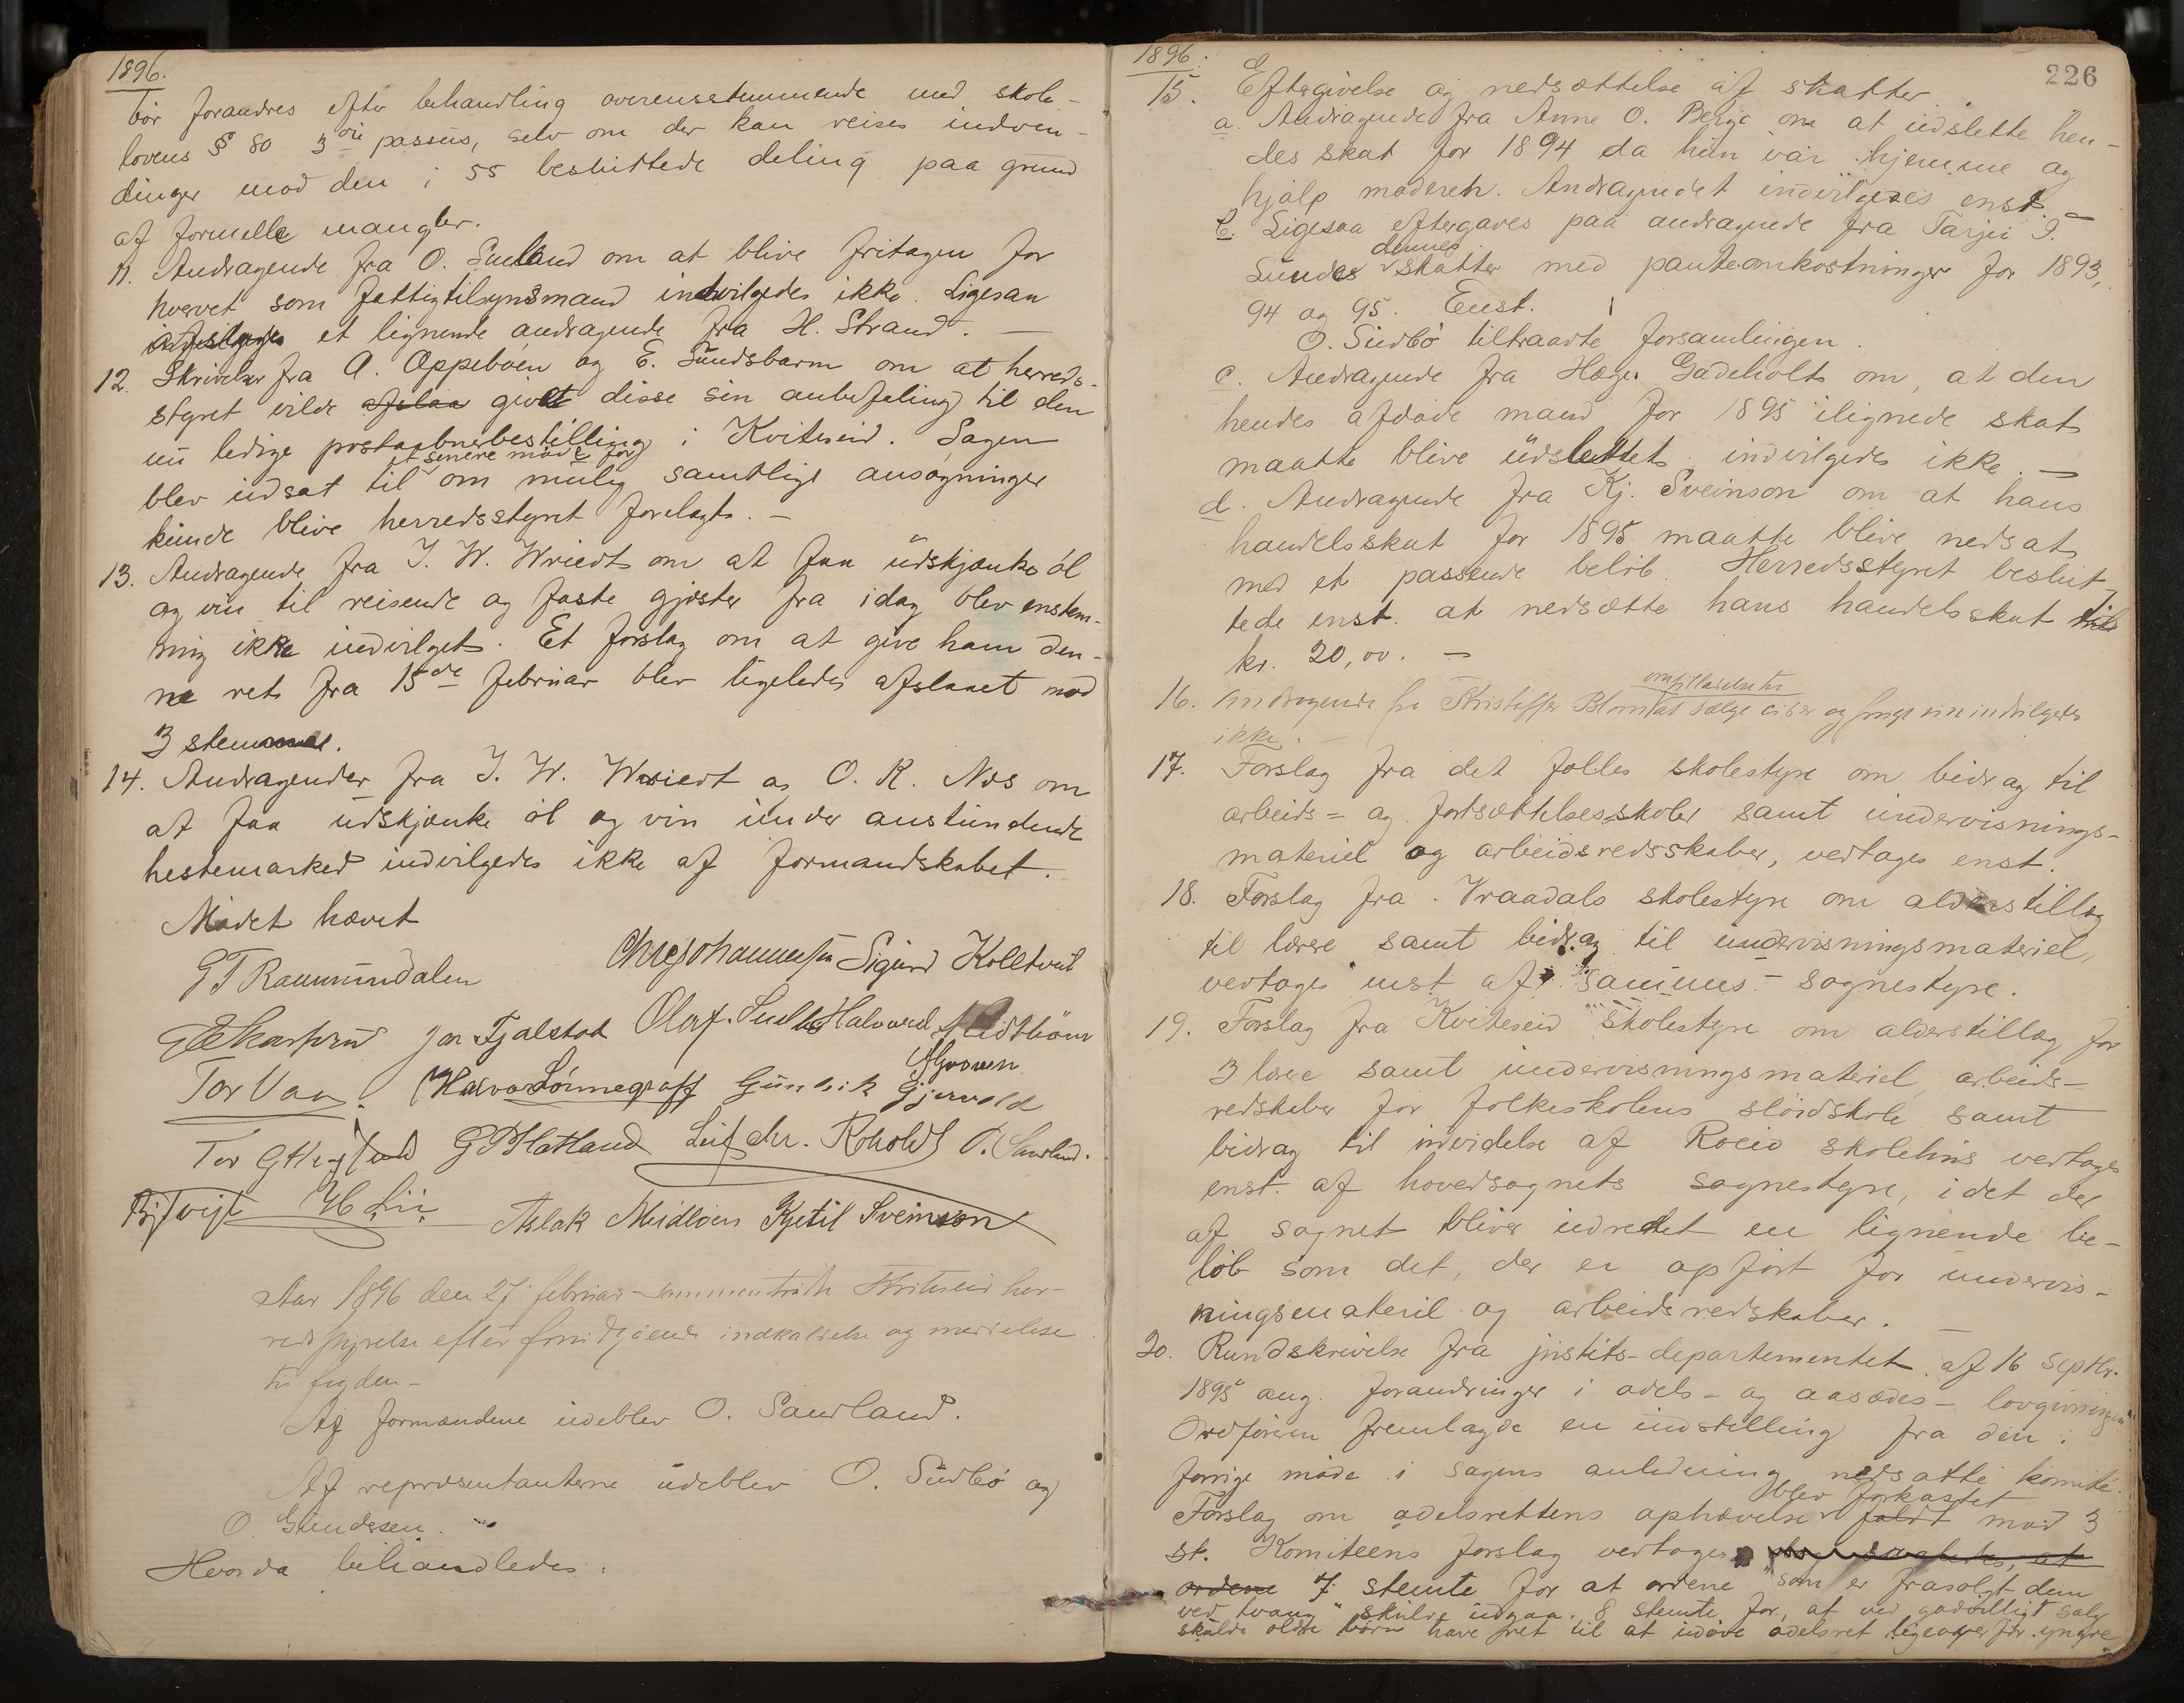 1896.
bör forandres efter behandling overensstemmende med skole-
lovens § 80 3die passus, selv om der kan reises indven-
dinger mod den i 55 besluttede deling paa grund
af formelle mangler.
11. Andragende fra O. Sudbø om at blive fritagen for
hvervet som fattigtilsynsmand indvilgedes ikke. Ligesaa
afsloges et lignende andragende fra H. Strand. —
12. Skrivelser fra A. Oppebøen og E. Sundsbarm om at herreds-
styret vilde afslaa givet disse sin anbefaling til den
nu ledige postaabnerbestilling i Kviteseid. Sagen
et senere møde for
blev udsat til om mulig samtlige ansøgninger
kunde blive herredsstyret forelagt. —
13. Andragende fra J. W. Wriedt om at faa udskjænke öl
og vin til reisende og faste gjæster fra idag blev enstem-
mig ikke indvilget. Et forslag om at give ham den-
ne ret fra 15de februar blev ligeledes afslaaet mod
3 stemmer.
14. Andragender fra J. W. Wriedt og O. K. Næs om
at faa udskjænke öl og vin under anstundende
hestemarked indvilgedes ikke af formandskabet.
Mödet hævet
G T Raumundalen Chr Johannessen Sigurd Kolltveit
Jon Fjalstad Olaf Halvord
Tor Vaa. Halvor Lönnegraff Gunleik Gjervold
Tor G G Flatland Leif chr. Roholdt O. Saurland.
H Lii Aslak Midtbøen Kjetil Sveinson
Aar 1896 den 27 februar sammentraadte Kviteseid her-
redsstyrelse efter forudgaaende indkaldelse og
Af formændene udeblev O. Saurland.
Af repræsentanterne udeblev O. Sudbö og
O. Gundesen.
Hvorda behandledes:
1896. 226
15. Eftergivelse og nedsættelse af skatter.
a. Andragende fra Anne O. Berge om at udslette hen-
des skat for 1894 da hun var hjemme og
hjalp moderen. Andragendet indvilgedes enst. —
b. Ligesaa eftergaves paa andragende fra Tarjei T.
dennes
Sundes skatter med panteomkostninger for 1893,
94 og 95. Enst.
O. Sudbö tiltraadte forsamlingen.
c. Andragende fra Hæge Gadeholt om, at den
hendes afdöde mand for 1895 ilignede skat
maatte blive udslettet indvilgedes ikke. —
d. Andragende fra Kj. Sveinson om at hans
handelsskat for 1895 maatte blive nedsat
med et passende belöb. Herredsstyret beslut-
tede enst. at nedsætte hans handelsskat til
kr. 20,00. —
om tilladelse til
16. Andragende fra Kristoffer Blom at sælge cider og indvilgedes
ikke. —
17. Forslag fra det fælles skolestyre om bidrag til
arbeids- og fortsættelsesskoler samt undervisnings-
materiel og arbeidsredsskaber, vedtages enst.
18. Forslag fra Vraadals skolestyre om alderstillæg
til lærere samt bidrag til undervisningsmateriel,
vedtages enst af sammes sognestyre.
19. Forslag fra Kviteseid skolestyre om alderstillæg for
3 lærere samt undervisningsmateriel, arbeids-
redskaber for folkeskolens slöidskole samt
bidrag til indvidelse af Roeid skolehus vedtages
enst. af hovedsognets sognestyre, idet der
af sognet bliver udredet en lignende be-
löb som det, der er opfört for undervis-
ningsmateriel og arbeidsredskaber. —
20. Rundskrivelse fra justits-departementet af 16 septbr.
1895 ang. forandringer i odels- og aasædes- lovgivningen
Ordföreren fremlagde en indstilling fra den i
forrige möde i sagens anledning nedsatte komite.
blev forkastet
Forslag om odelsrettens ophævelse faldt mod 3
st. Komiteens forslag vedtoges at
ordene 7 stemte for at ordene "som er frasolgt dem
ved tvang" skulde udgaa. 8 stemte for, at ved godvilligt salg
skulde ældre börn have ret til at udöve odelsret ligeoverfor yngre